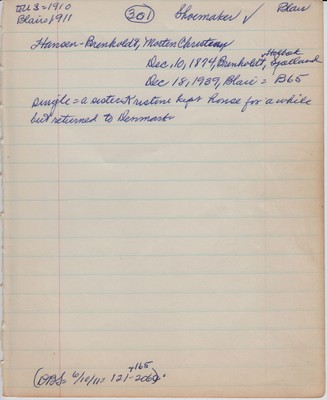 1910
Blair 1911
301 Shoemaker ✓ Blair
Hansen-Brenholdt, Morten Christian
Dec, 10, 1874, Brenholdt, Holbæk, Sjælland
Dec 18, 1939, Blair = B65
single = a sister Kristine kept house for a while
but returned to Denmark
(OBS= 6/10/11= 121-206)
+165